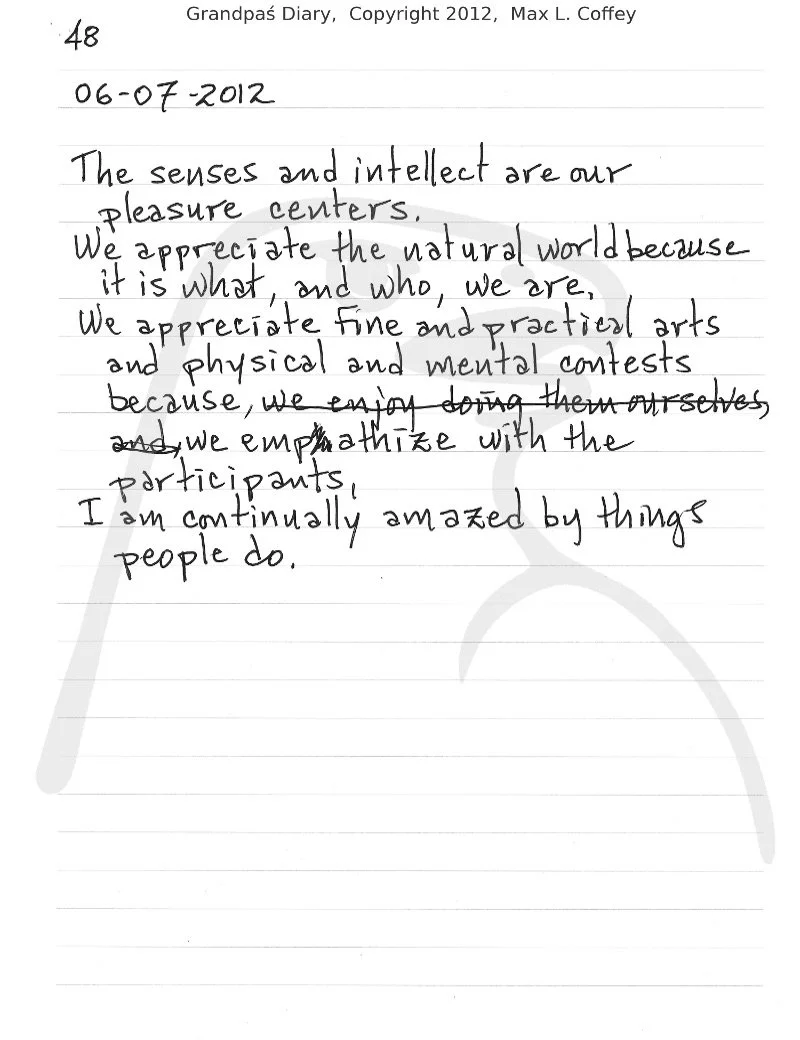 Grandpaś Diary, Copyright 2012, Max L. Coffey
48
06-07-2012
The senses and intellect are our
pleasure centers.
We appreciate the natural world because
it is what, and who, we are.
We appreciate fine and practical arts
and physical and mental contests
because, we enjoy doing them ourselves,
and, we empathize with the
participants.
I am continually amazed by things
people do.